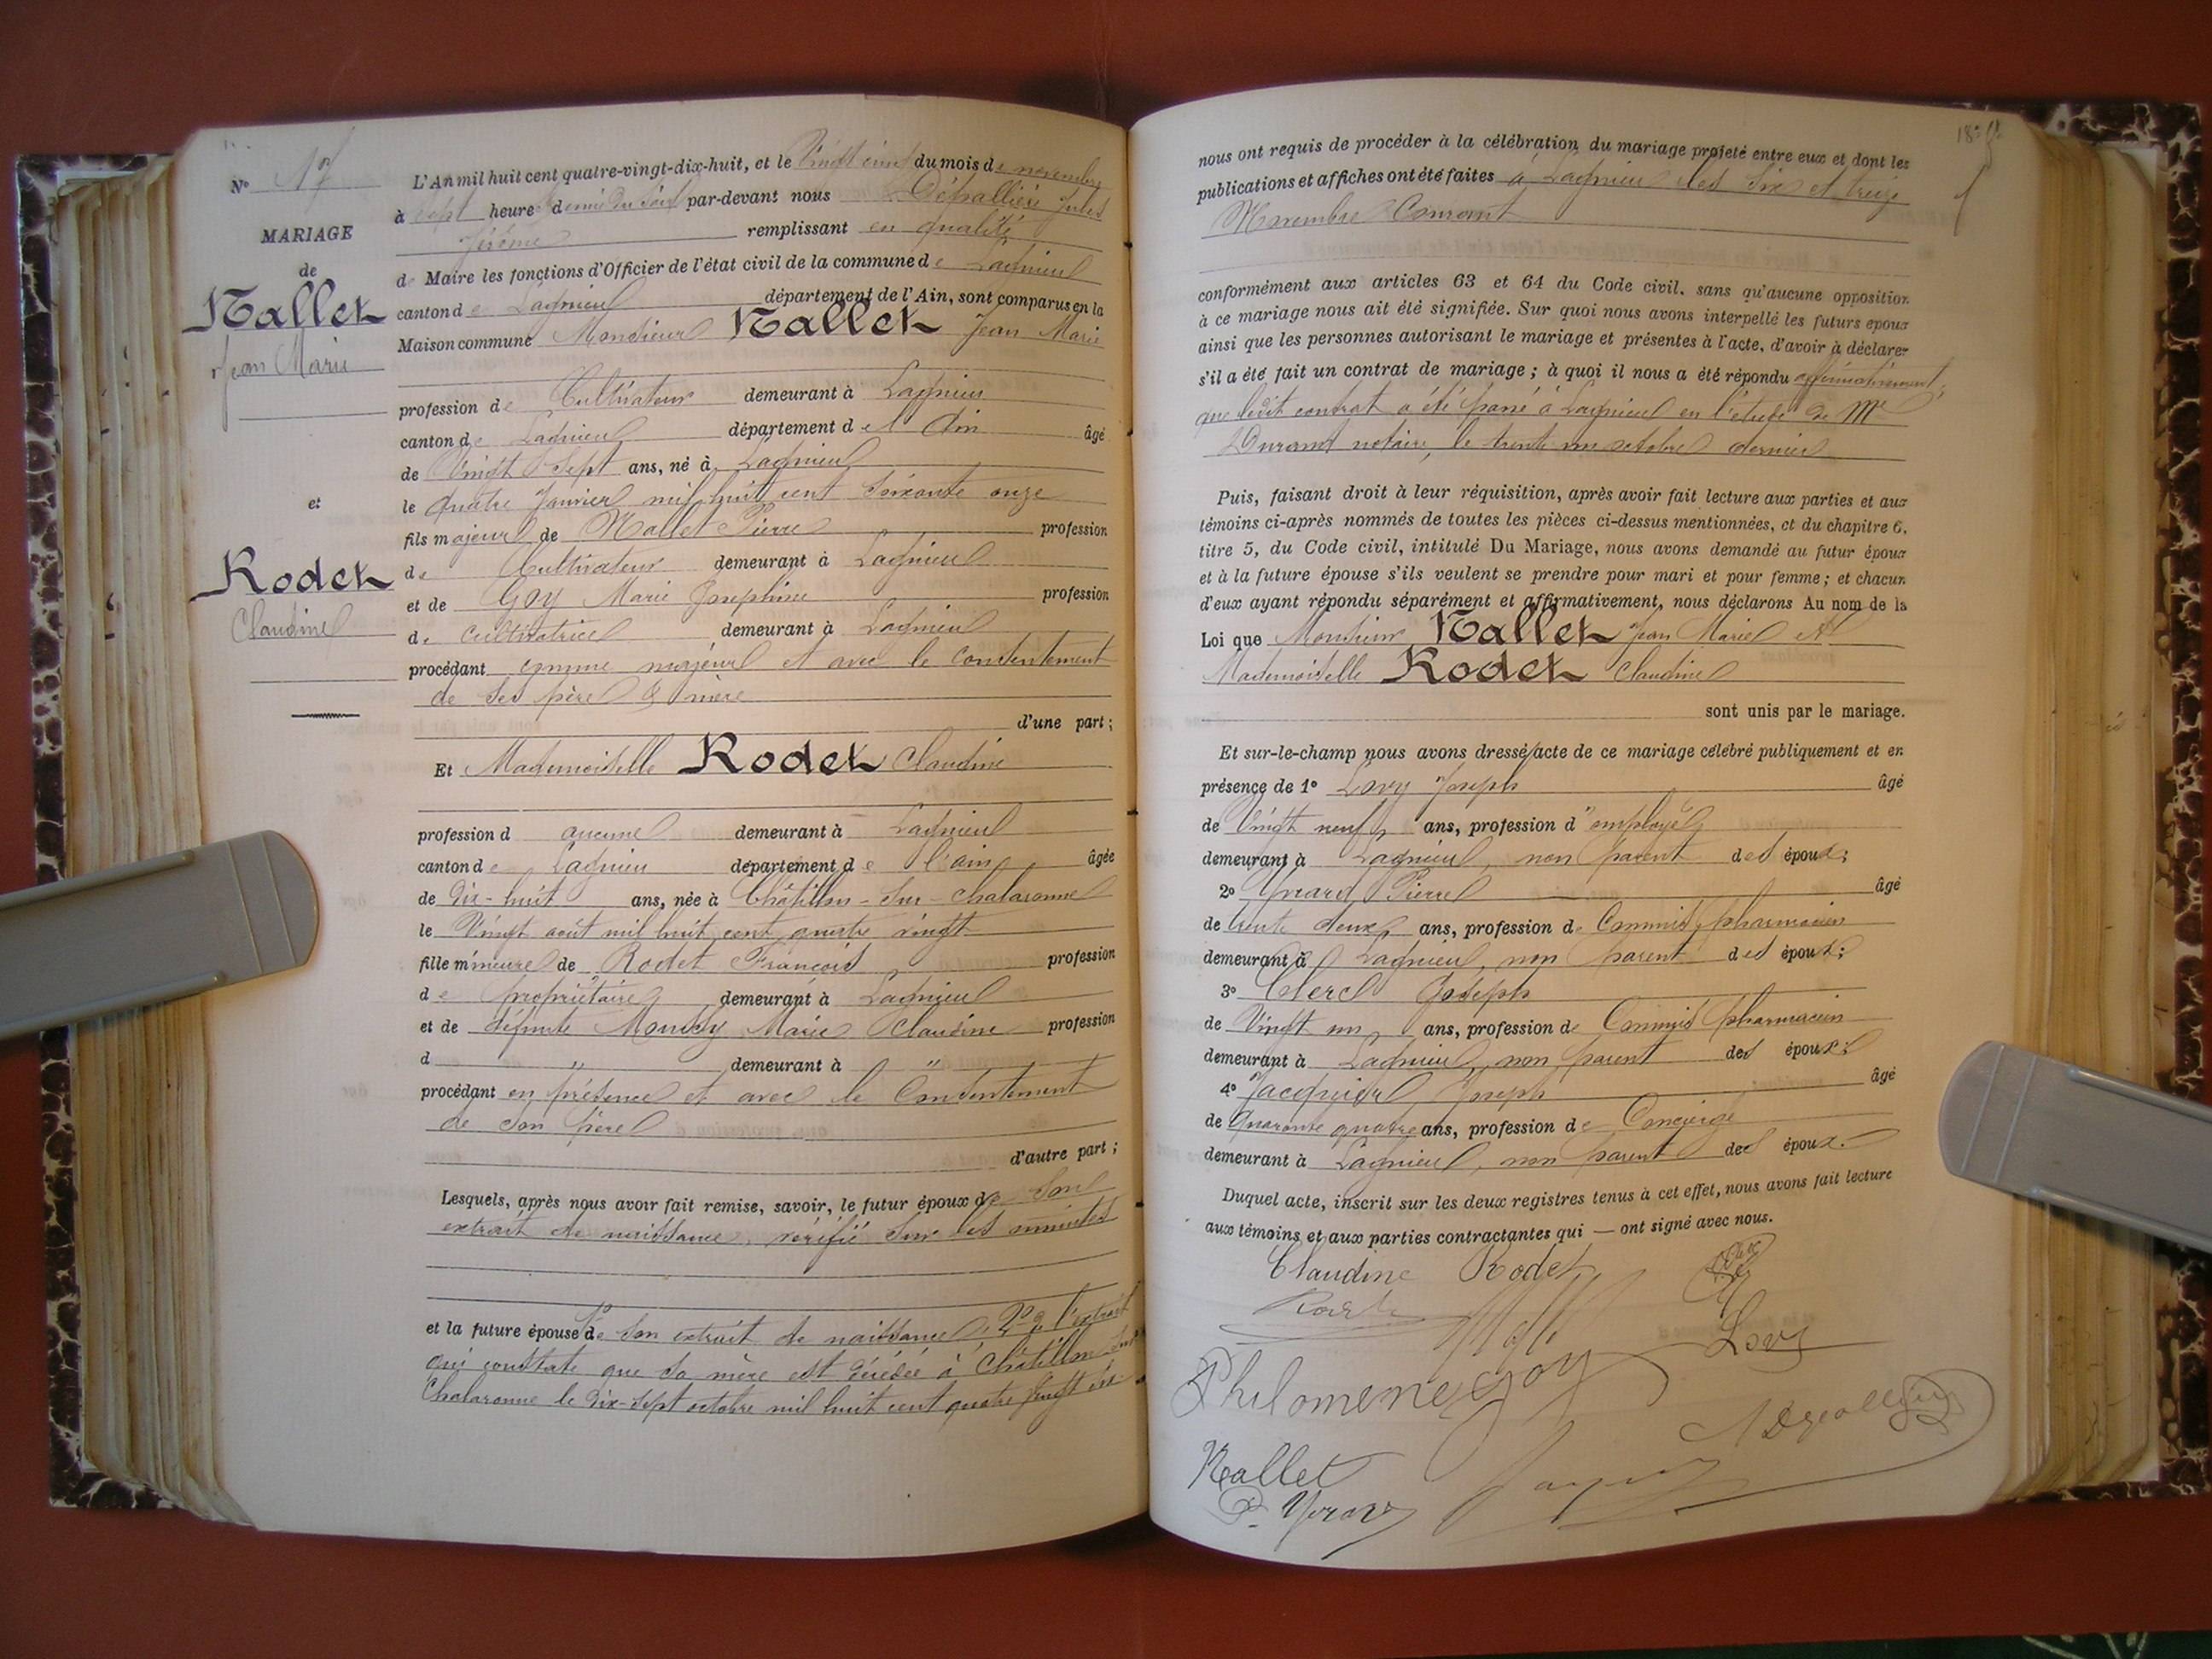 N° 17
MARIAGE
de
Nallet
Jean Marie
et
Rodet
Claudine
L'An mil huit cent quatre-vingt-dix-huit, et le Vingt cinq du mois de novembre
à sept heure demie du soir par-devant nous Dépallière Jules
Jérôme remplissant en qualité
de Maire les fonctions d'Officier de l'état civil de la commune de Lagnieu
canton de Lagnieu département de l'Ain, sont comparus en la
Maison commune Monsieur Nallet Jean Marie
profession de Cultivateur demeurant à Lagnieu
canton de Lagnieu département de l'Ain âgé
de Vingt Sept ans, né à Lagnieu
le quatre Janvier mil huit cent soixante onze
fils majeur de Nallet Pierre profession
de Cultivateur demeurant à Lagnieu
et de Goy Marie Josephine profession
de cultivatrice demeurant à Lagnieu
procédant comme majeur et avec le consentement
de ses père & mère
d'une part ;
Et Mademoiselle Rodet Claudine
profession d aucune demeurant à Lagnieu
canton de Lagnieu département de l'ain âgée
de Dix-huit ans, née à Châtillon-Sur-Chalaronne
le Vingt août mil huit cent quatre vingt
fille mineure de Rodet François profession
de propriétaire demeurant à Lagnieu
et de défunte Marie Claudine profession
d " demeurant à "
procédant en présence et avec le Consentement
de son père
d'autre part ;
Lesquels, après nous avoir fait remise, savoir, le futur époux de Son
extrait de naissance, vérifié sur les minutes
et la future épouse 1° de son extrait de naissance, 2° l'extrait
qui constate que sa mère est décédée à Châtillon Sur
Chalaronne le Dix-sept octobre mil huit cent quatre vingt
nous ont requis de procéder à la célébration du mariage projeté entre eux et dont les
publications et affiches ont été faites à Lagnieu les six et treize
Novembre Courant
conformément aux articles 63 et 64 du Code civil, sans qu'aucune opposition
à ce mariage nous ait été signifiée. Sur quoi nous avons interpellé les futurs époux
ainsi que les personnes autorisant le mariage et présentes à l'acte, d'avoir à déclarer
s'il a été fait un contrat de mariage ; à quoi il nous a été répondu affirmativement,
que ledit contrat a été passé à Lagnieu en l'étude de Me
Durand notaire, le trente un octobre dernier
Puis, faisant droit à leur réquisition, après avoir fait lecture aux parties et aux
témoins ci-après nommés de toutes les pièces ci-dessus mentionnées, et du chapitre 6,
titre 5, du Code civil, intitulé Du Mariage, nous avons demandé au futur époux
et à la future épouse s'ils veulent se prendre pour mari et pour femme ; et chacun
d'eux ayant répondu séparément et affirmativement, nous déclarons Au nom de la
Loi que Monsieur Nallet Jean Marie et
Mademoiselle Rodet Claudine
sont unis par le mariage.
Et sur-le-champ nous avons dressé acte de ce mariage célébré publiquement et en
présence de 1° Lovy Joseph âgé
de Vingt neuf ans, profession d'employé
demeurant à Lagnieu, non parent des époux ;
2° Yvrard Pierre âgé
de trente deux ans, profession de Commis pharmacien
demeurant à Lagnieu, non parent des époux ;
3° Clerc Joseph
de Vingt un ans, profession de Commis pharmacien
demeurant à Lagnieu, non parent des époux ;
4° Jacquier Joseph âgé
de Quarante quatre ans, profession de Concierge
demeurant à Lagnieu, non parent des époux.
Duquel acte, inscrit sur les deux registres tenus à cet effet, nous avons fait lecture
aux témoins et aux parties contractantes qui — ont signé avec nous.
Claudine Rodet
Lovy
Philomene Goy
Nallet